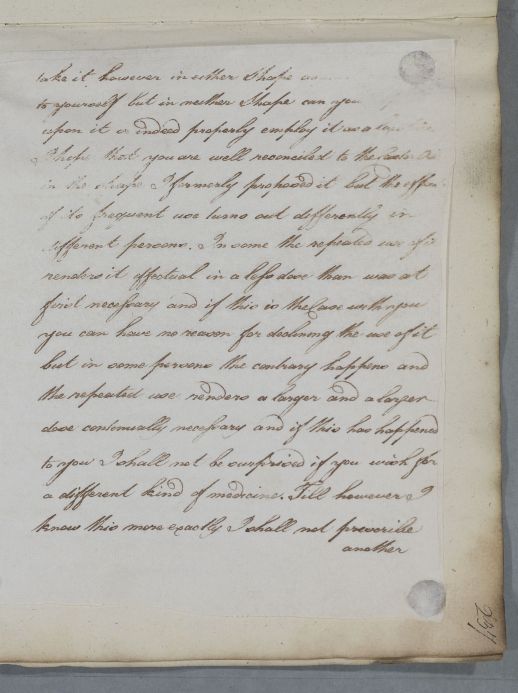 take it however in either Shape
to yourself but in neither Shape can you
upon it or indeed properly employ it as a
I hope that you are well reconciled to the
in the shape I formerly proposed it but the effect
of its frequent use turns out differently in
different persons. In some the repeated use of it
renders it effectual in a less dose than was at
first necessary and if this is the Case with you
you can have no reason for declining the use of it
but in some persons the contrary happens and
the repeated use renders a larger and a larger
dose continually necessary and if this has happened
to you I shall not be surprised if you wish for
a different kind of medicine. Till however I
know this more exactly I shall not prescribe
another